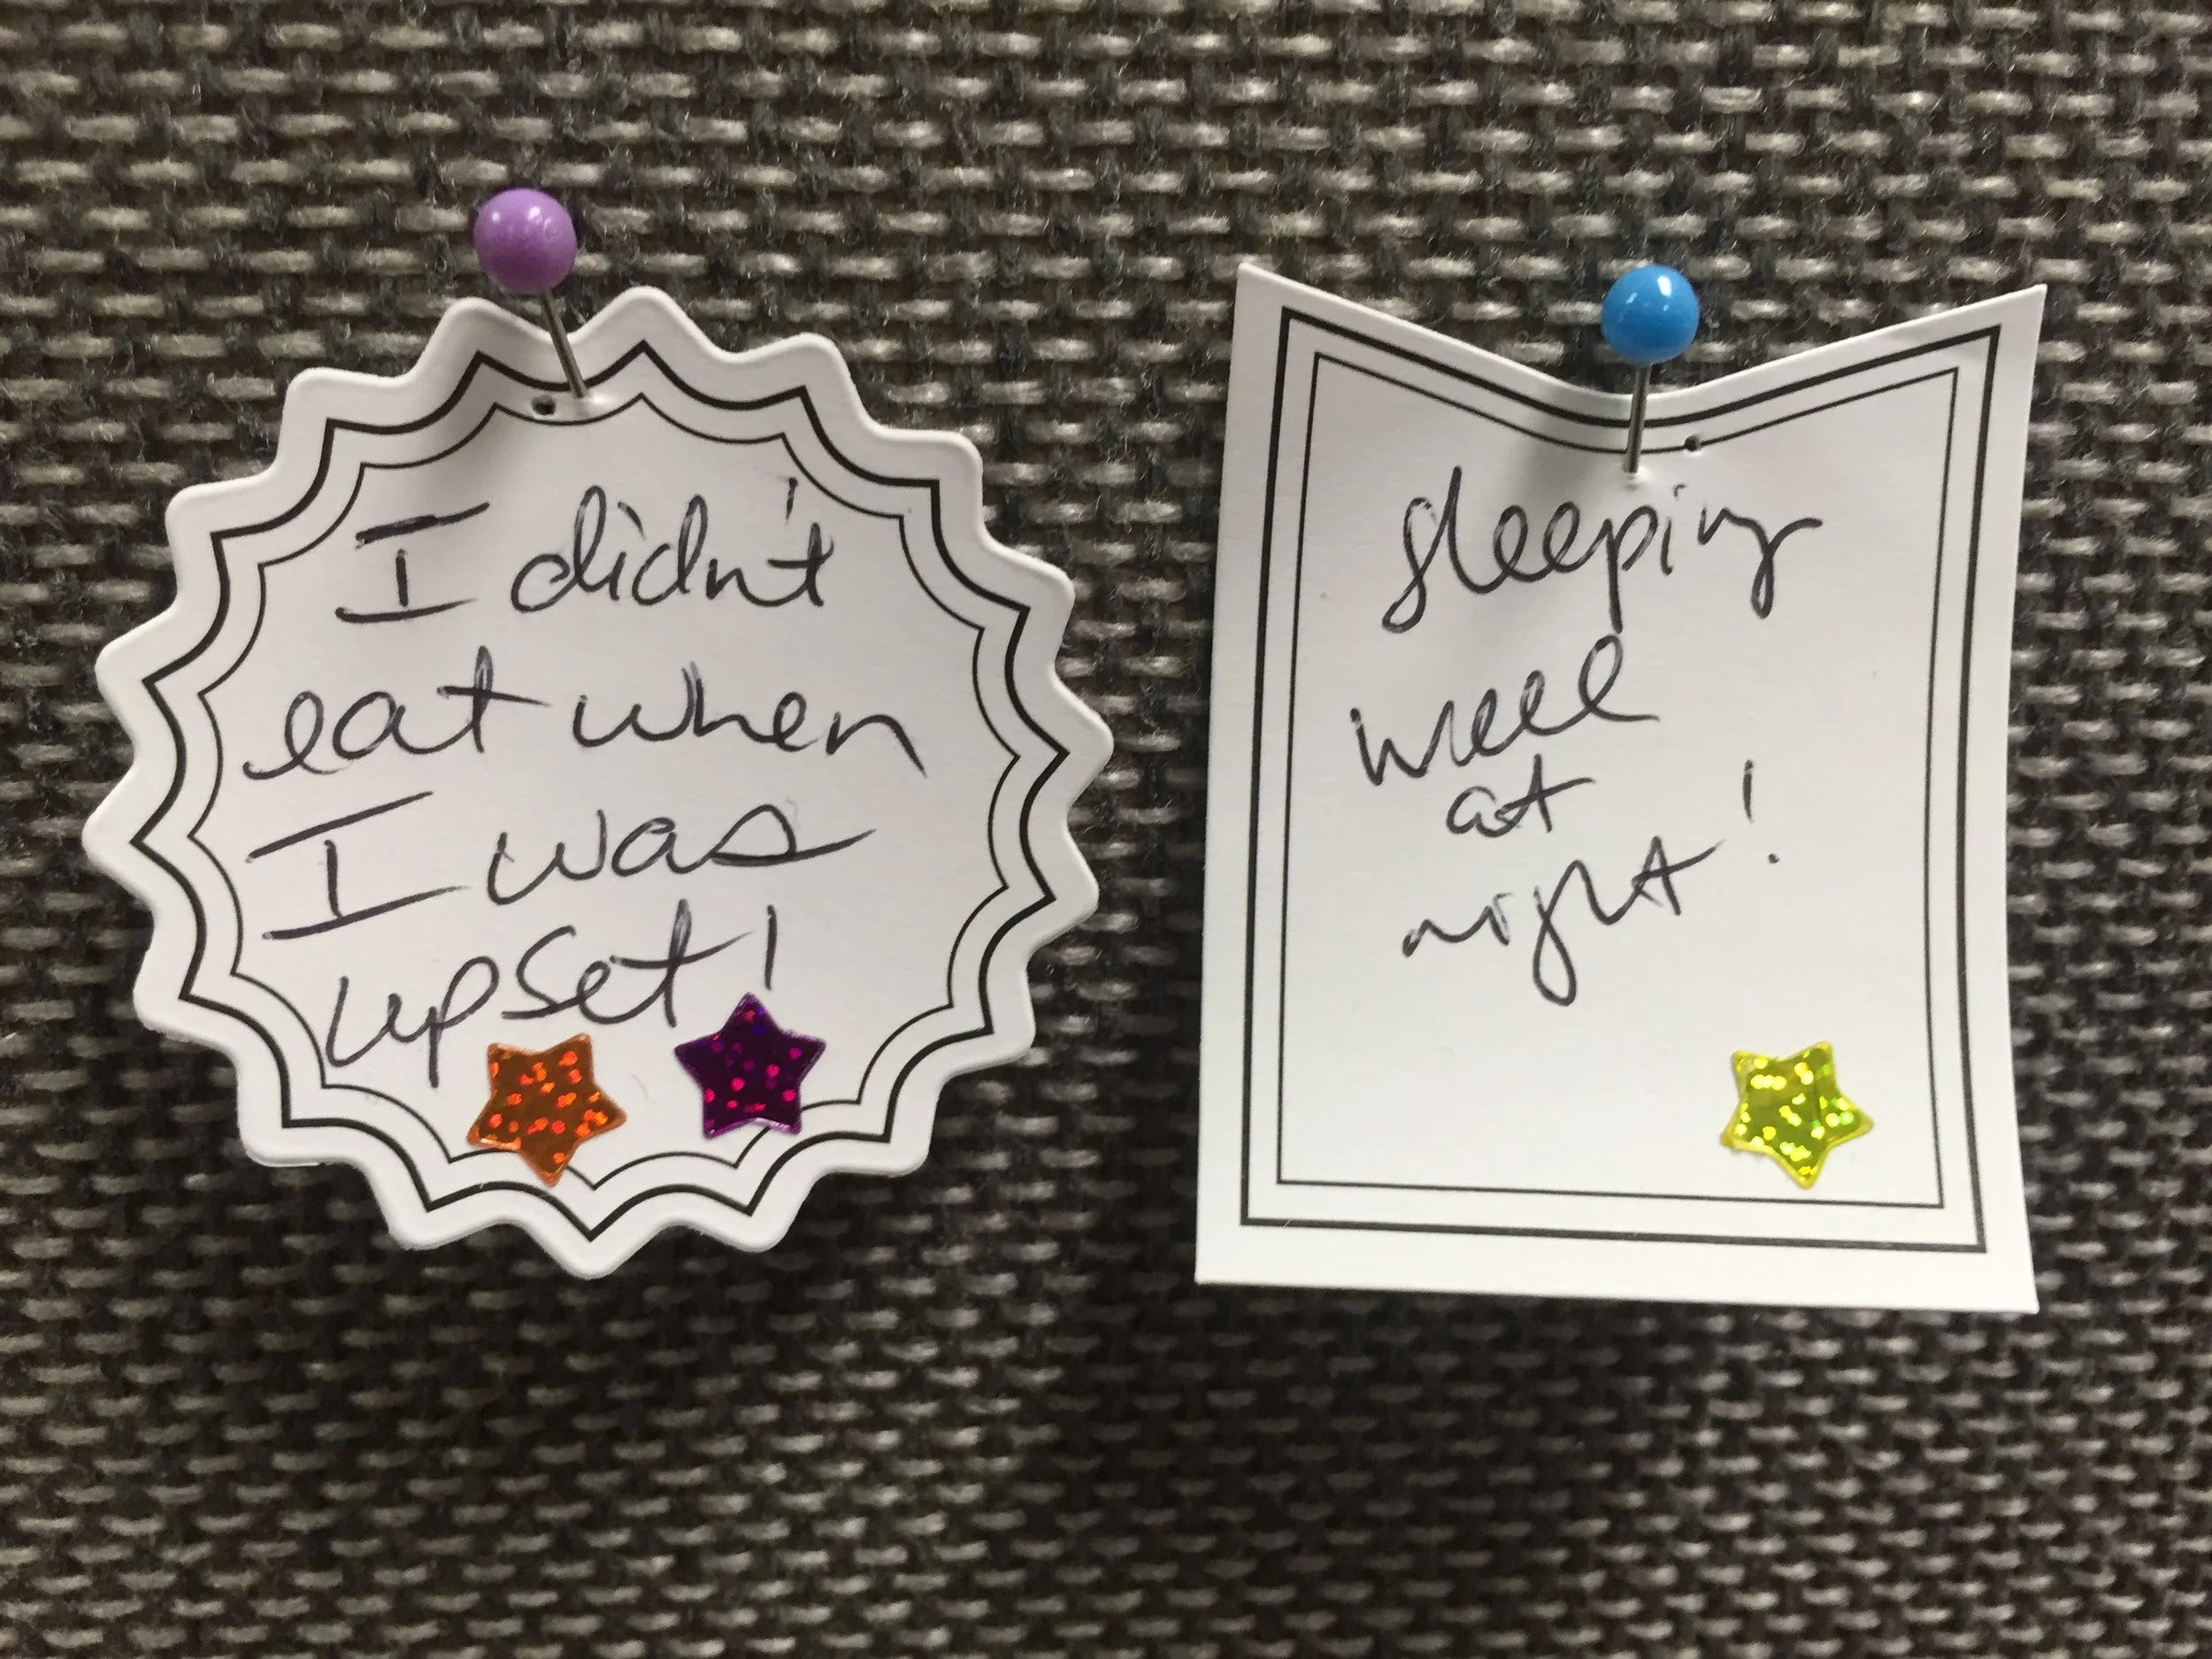 I didn't
eat when
I was
upset!
sleeping
well
at
night!